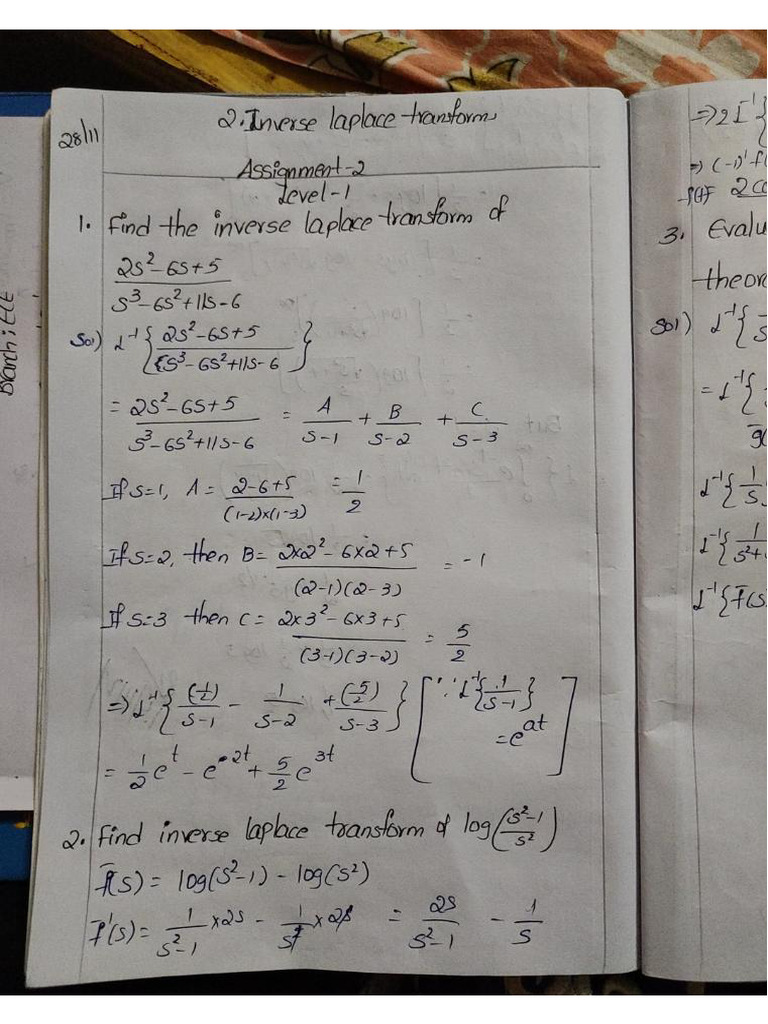 28/11
2. Inverse laplace transform
Assignment-2
Level-1
1. Find the inverse laplace transform of
2s²-6s+5 / s³-6s²+11s-6
Sol) L⁻¹{ 2s²-6s+5 / {s³-6s²+11s-6 }
= 2s²-6s+5 / s³-6s²+11s-6 = A / s-1 + B / s-2 + C / s-3
If s=1, A = 2-6+5 / (1-2)×(1-3) = 1/2
If s=2, then B = 2×2²-6×2+5 / (2-1)(2-3) = -1
If s=3 then C = 2×3²-6×3+5 / (3-1)(3-2) = 5/2
⇒ L⁻¹{ (1/2) / s-1 - 1 / s-2 + (5/2) / s-3 } [ ∵ L⁻¹{ 1 / s-1 } = e^at ]
= 1/2 e^t - e^2t + 5/2 e^3t
2. Find inverse laplace transform of log(s²-1 / s²)
f̄(s) = log(s²-1) - log(s²)
f̄'(s) = 1 / s²-1 ×2s - 1 / s² ×2s = 2s / s²-1 - 1 / s
Branch: ECE
⇒ 2 L⁻¹{
3. Evalu
theor
Sol) L⁻¹{
= L⁻¹{
L⁻¹{ 1 / s
L⁻¹{ 1 / s²+
L⁻¹{f̄(s